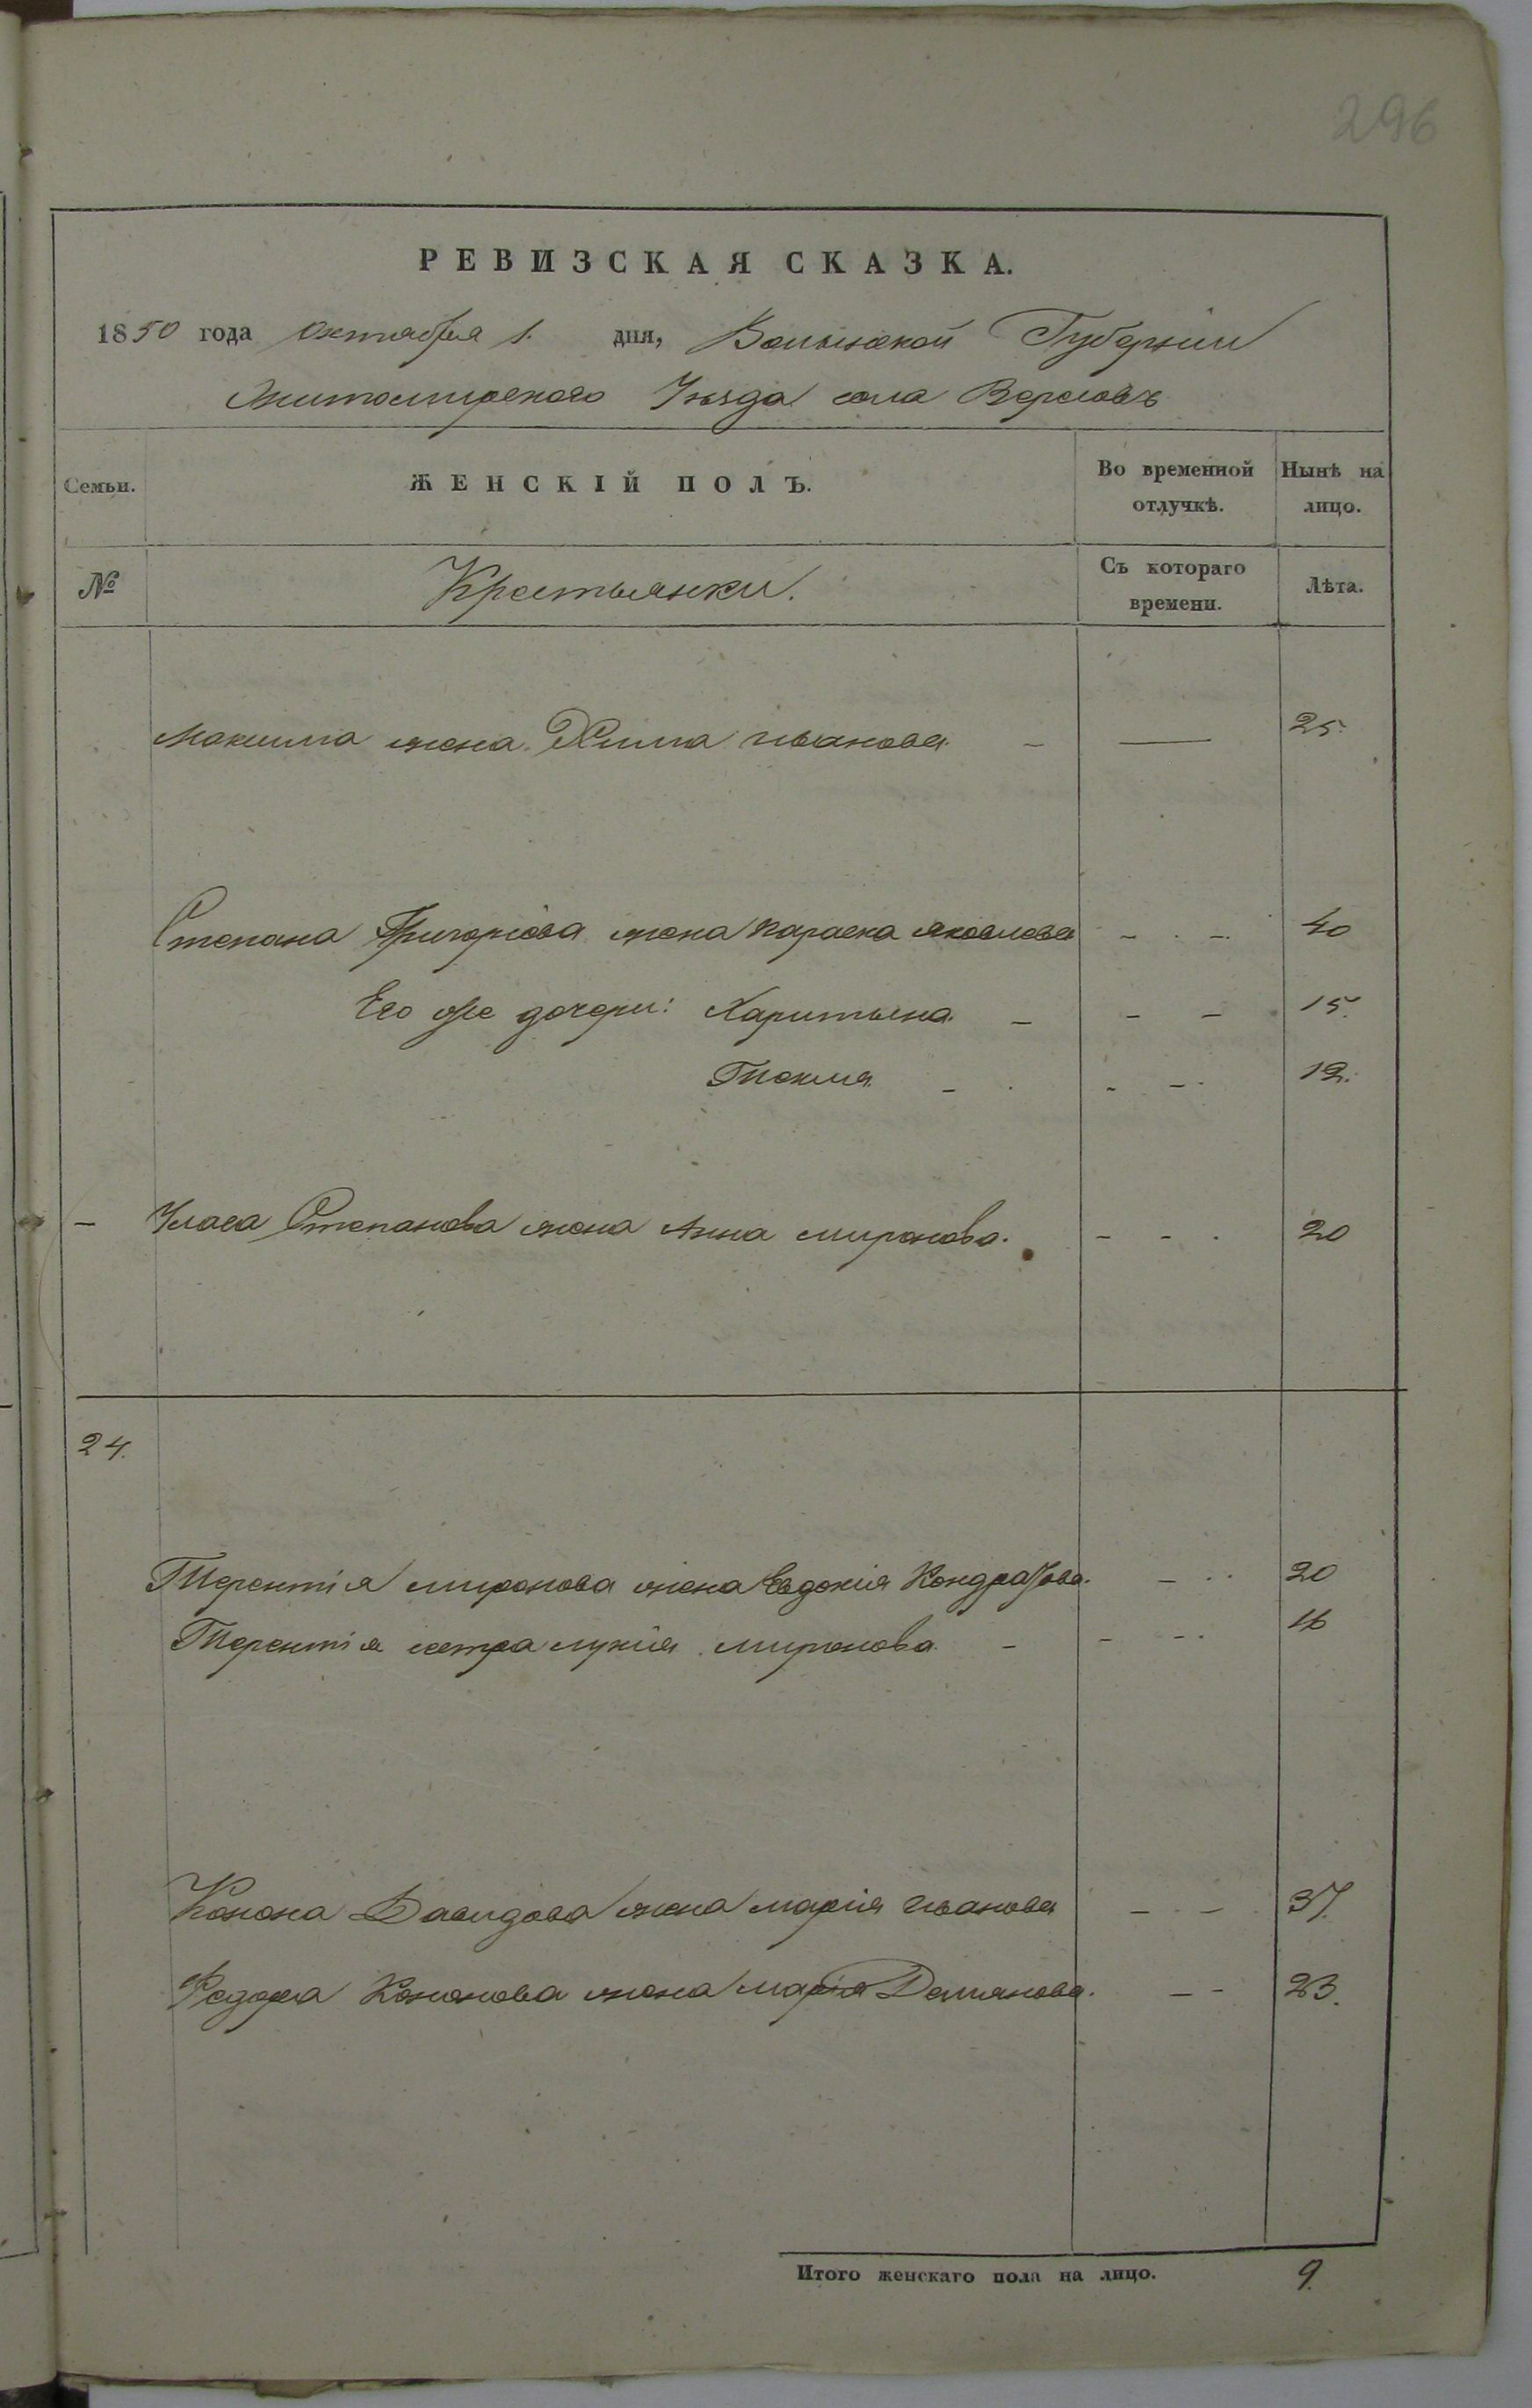 296
РЕВИЗСКАЯ СКАЗКА.
1850 года Октября 1. дня, Волынской Губернии
Житомирского Уезда села Вересовъ
Семьи. ЖЕНСКІЙ ПОЛЪ. Во временной отлучкѣ. Нынѣ на лицо.
№ Крестьянки. Съ котораго времени. Лѣта.
Максима жена Хима иванова - — 25.
Степана Григоріова жена параска яковлева - - 40
Его же дочери: Харитына - - - 15.
Текля - - - 12.
- Уласа Степанова жена Анна миронова. - - 20
24.
Терентія миронова жена Евдокия Кондратова. - 20
Терентія сестра лукия миронова - - - 16
Конона Давидова жена марія иванова - - 37.
Федора Кононова жена марія Демянова. - - 23.
Итого женскаго пола на лицо. 9.